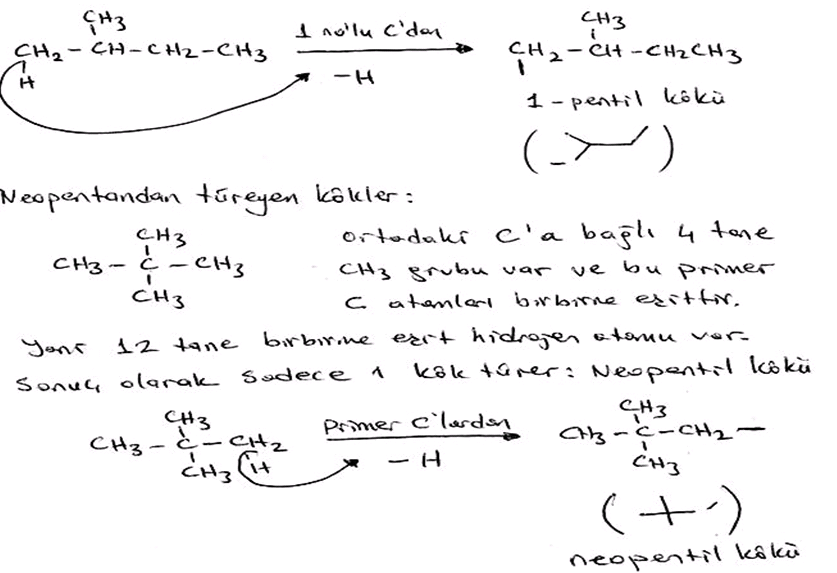 CH3 CH3
CH2 - CH - CH2 - CH3 1 no'lu C'dan CH2 - CH - CH2CH3
H - H
1 - pentil kökü
Neopentandan türeyen kökler:
CH3 ortadaki C'a bağlı 4 tane
CH3 - C - CH3 CH3 grubu var ve bu primer
CH3 C atomları birbirine eşittir.
Yani 12 tane birbirine eşit hidrojen atomu var.
Sonuç olarak sadece 1 kök türer: Neopentil kökü
CH3 CH3
CH3 - C - CH2 Primer C'lardan CH3 - C - CH2 -
CH3 H - H CH3
neopentil kökü